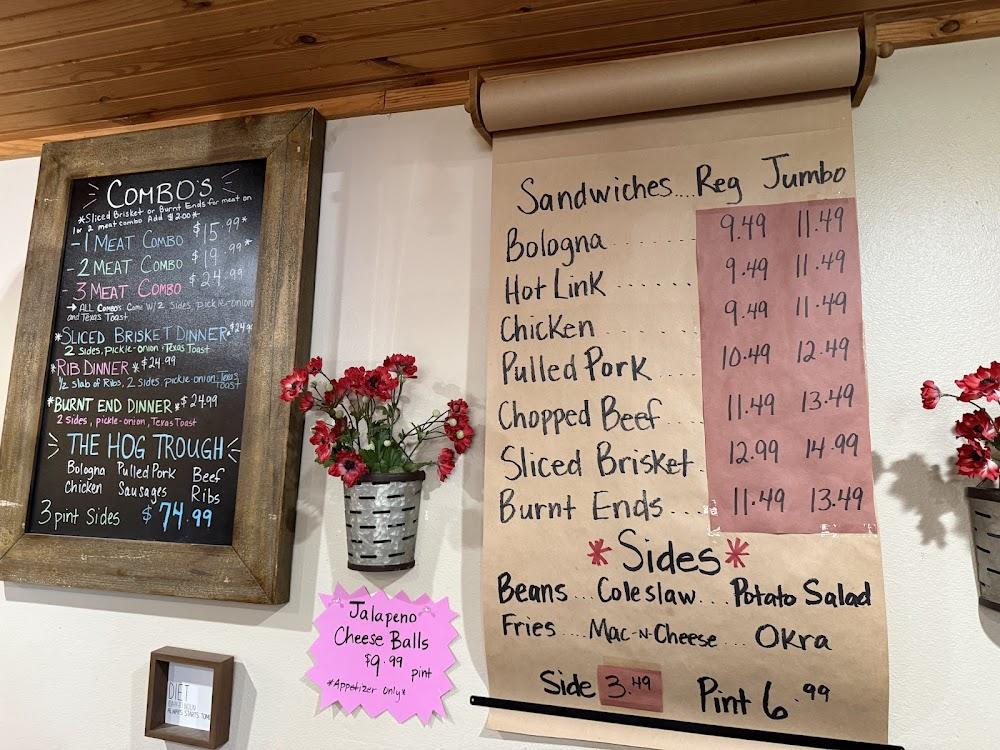 COMBO'S
*Sliced Brisket or Burnt Ends for meat on
1 or 2 meat combo Add $2.00*
-1 MEAT COMBO $15.99*
-2 MEAT COMBO $19.99*
-3 MEAT COMBO $24.99
→ ALL Combos Come W/2 Sides, pickle-onion
and Texas Toast
*SLICED BRISKET DINNER* $24.99
2 sides, pickle-onion, Texas Toast
*RIB DINNER* $24.99
1/2 slab of Ribs, 2 sides, pickle-onion, Texas Toast
*BURNT END DINNER* $24.99
2 sides, pickle-onion, Texas Toast
THE HOG TROUGH
Bologna Pulled Pork Beef
Chicken Sausages Ribs
3 pint Sides $74.99
Jalapeno
Cheese Balls
$9.99 pint
*Appetizer Only*
DIET
ALWAYS STARTS TOM
Sandwiches...Reg Jumbo
Bologna 9.49 11.49
Hot Link 9.49 11.49
Chicken 9.49 11.49
Pulled Pork 10.49 12.49
Chopped Beef 11.49 13.49
Sliced Brisket 12.99 14.99
Burnt Ends 11.49 13.49
*Sides*
Beans...Coleslaw...Potato Salad
Fries....Mac-N-Cheese...Okra
Side 3.49 Pint 6.99